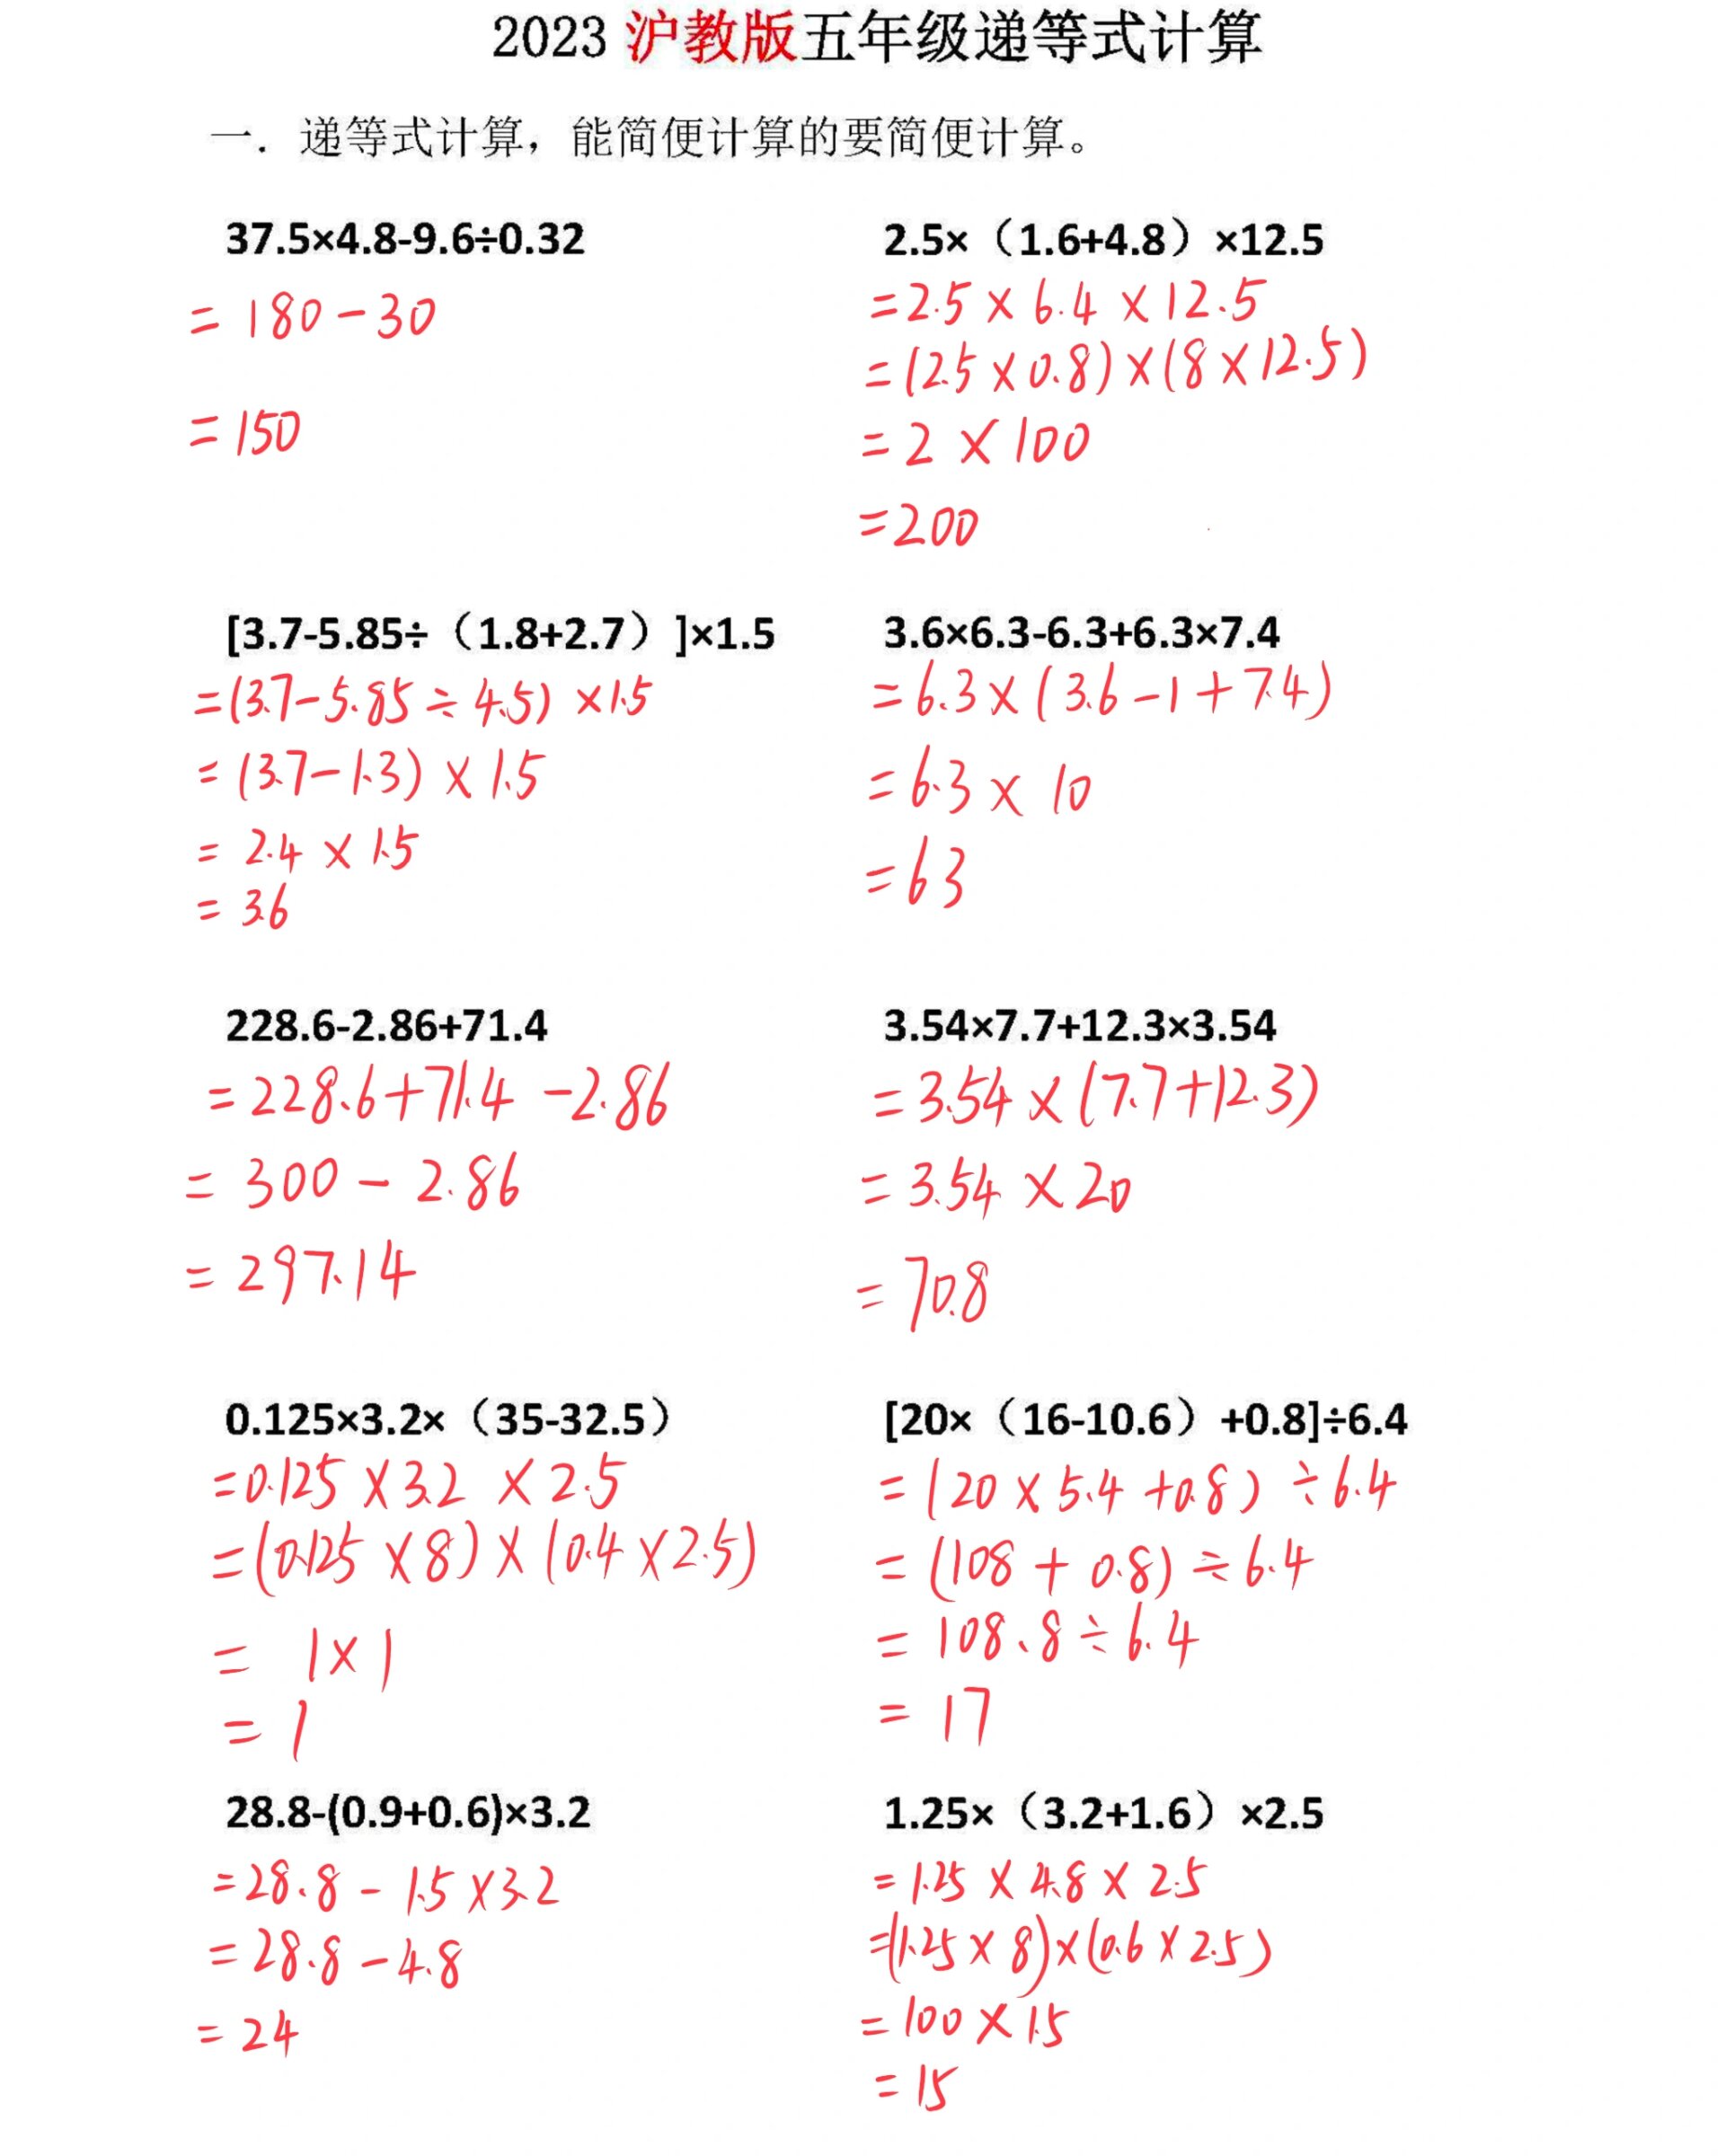 2023 沪教版五年级递等式计算
一．递等式计算，能简便计算的要简便计算。
37.5×4.8-9.6÷0.32
= 180-30
= 150
2.5×（1.6+4.8）×12.5
=2.5×6.4×12.5
=(2.5×0.8)×(8×12.5)
=2×100
=200
[3.7-5.85÷（1.8+2.7）]×1.5
=(3.7-5.85÷4.5)×1.5
=(3.7-1.3)×1.5
=2.4×1.5
=3.6
3.6×6.3-6.3+6.3×7.4
=6.3×(3.6-1+7.4)
=6.3×10
=63
228.6-2.86+71.4
=228.6+71.4-2.86
=300-2.86
=297.14
3.54×7.7+12.3×3.54
=3.54×(7.7+12.3)
=3.54×20
=70.8
0.125×3.2×（35-32.5）
=0.125×3.2×2.5
=(0.125×8)×(0.4×2.5)
=1×1
=1
[20×（16-10.6）+0.8]÷6.4
=(20×5.4+0.8)÷6.4
=(108+0.8)÷6.4
=108.8÷6.4
=17
28.8-(0.9+0.6)×3.2
=28.8-1.5×3.2
=28.8-4.8
=24
1.25×（3.2+1.6）×2.5
=1.25×4.8×2.5
=(1.25×8)×(0.6×2.5)
=100×1.5
=15